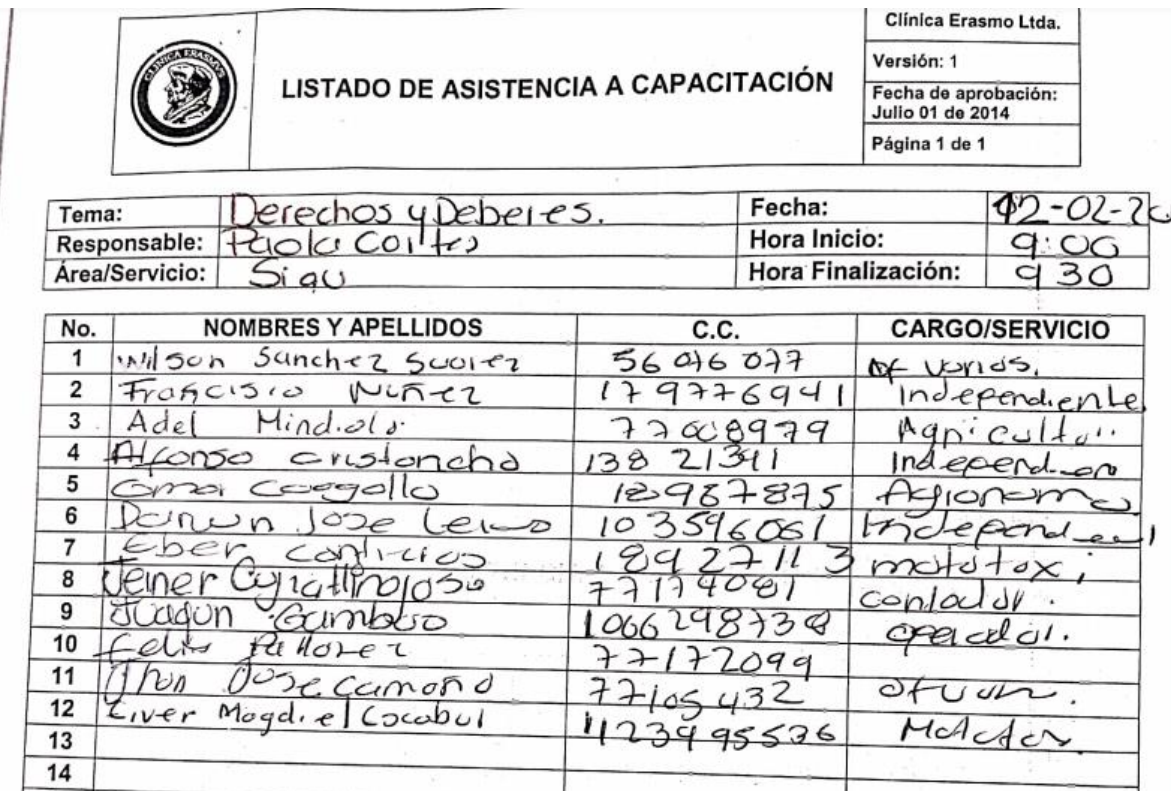 CLINICA ERASMVS
LISTADO DE ASISTENCIA A CAPACITACIÓN
Clínica Erasmo Ltda.
Versión: 1
Fecha de aprobación:
Julio 01 de 2014
Página 1 de 1
Tema: Derechos y Deberes. Fecha: 12-02-20
Responsable: Paola Cortes Hora Inicio: 9:00
Área/Servicio: Siau Hora Finalización: 9 30
No. NOMBRES Y APELLIDOS C.C. CARGO/SERVICIO
1 Wilson Sanchez Suarez 56076077 of varios.
2 Francisco Nuñez 179776941 Independiente
3 Adel Mindiola 77008979 Agricultor
4 Alfonso cristancho 13821341 Independien
5 Omar Coogollo Agronomo
6 Jose 1035596061 Independ
7 Eber 18927113 mototaxi
8 Jeiner 77174081 contador.
9 Gamboa 1066298738 operador.
10 Felix 77172099
11 Jhon Jose Camaño 77105432
12 Eiver Magdiel 1123995536
13
14